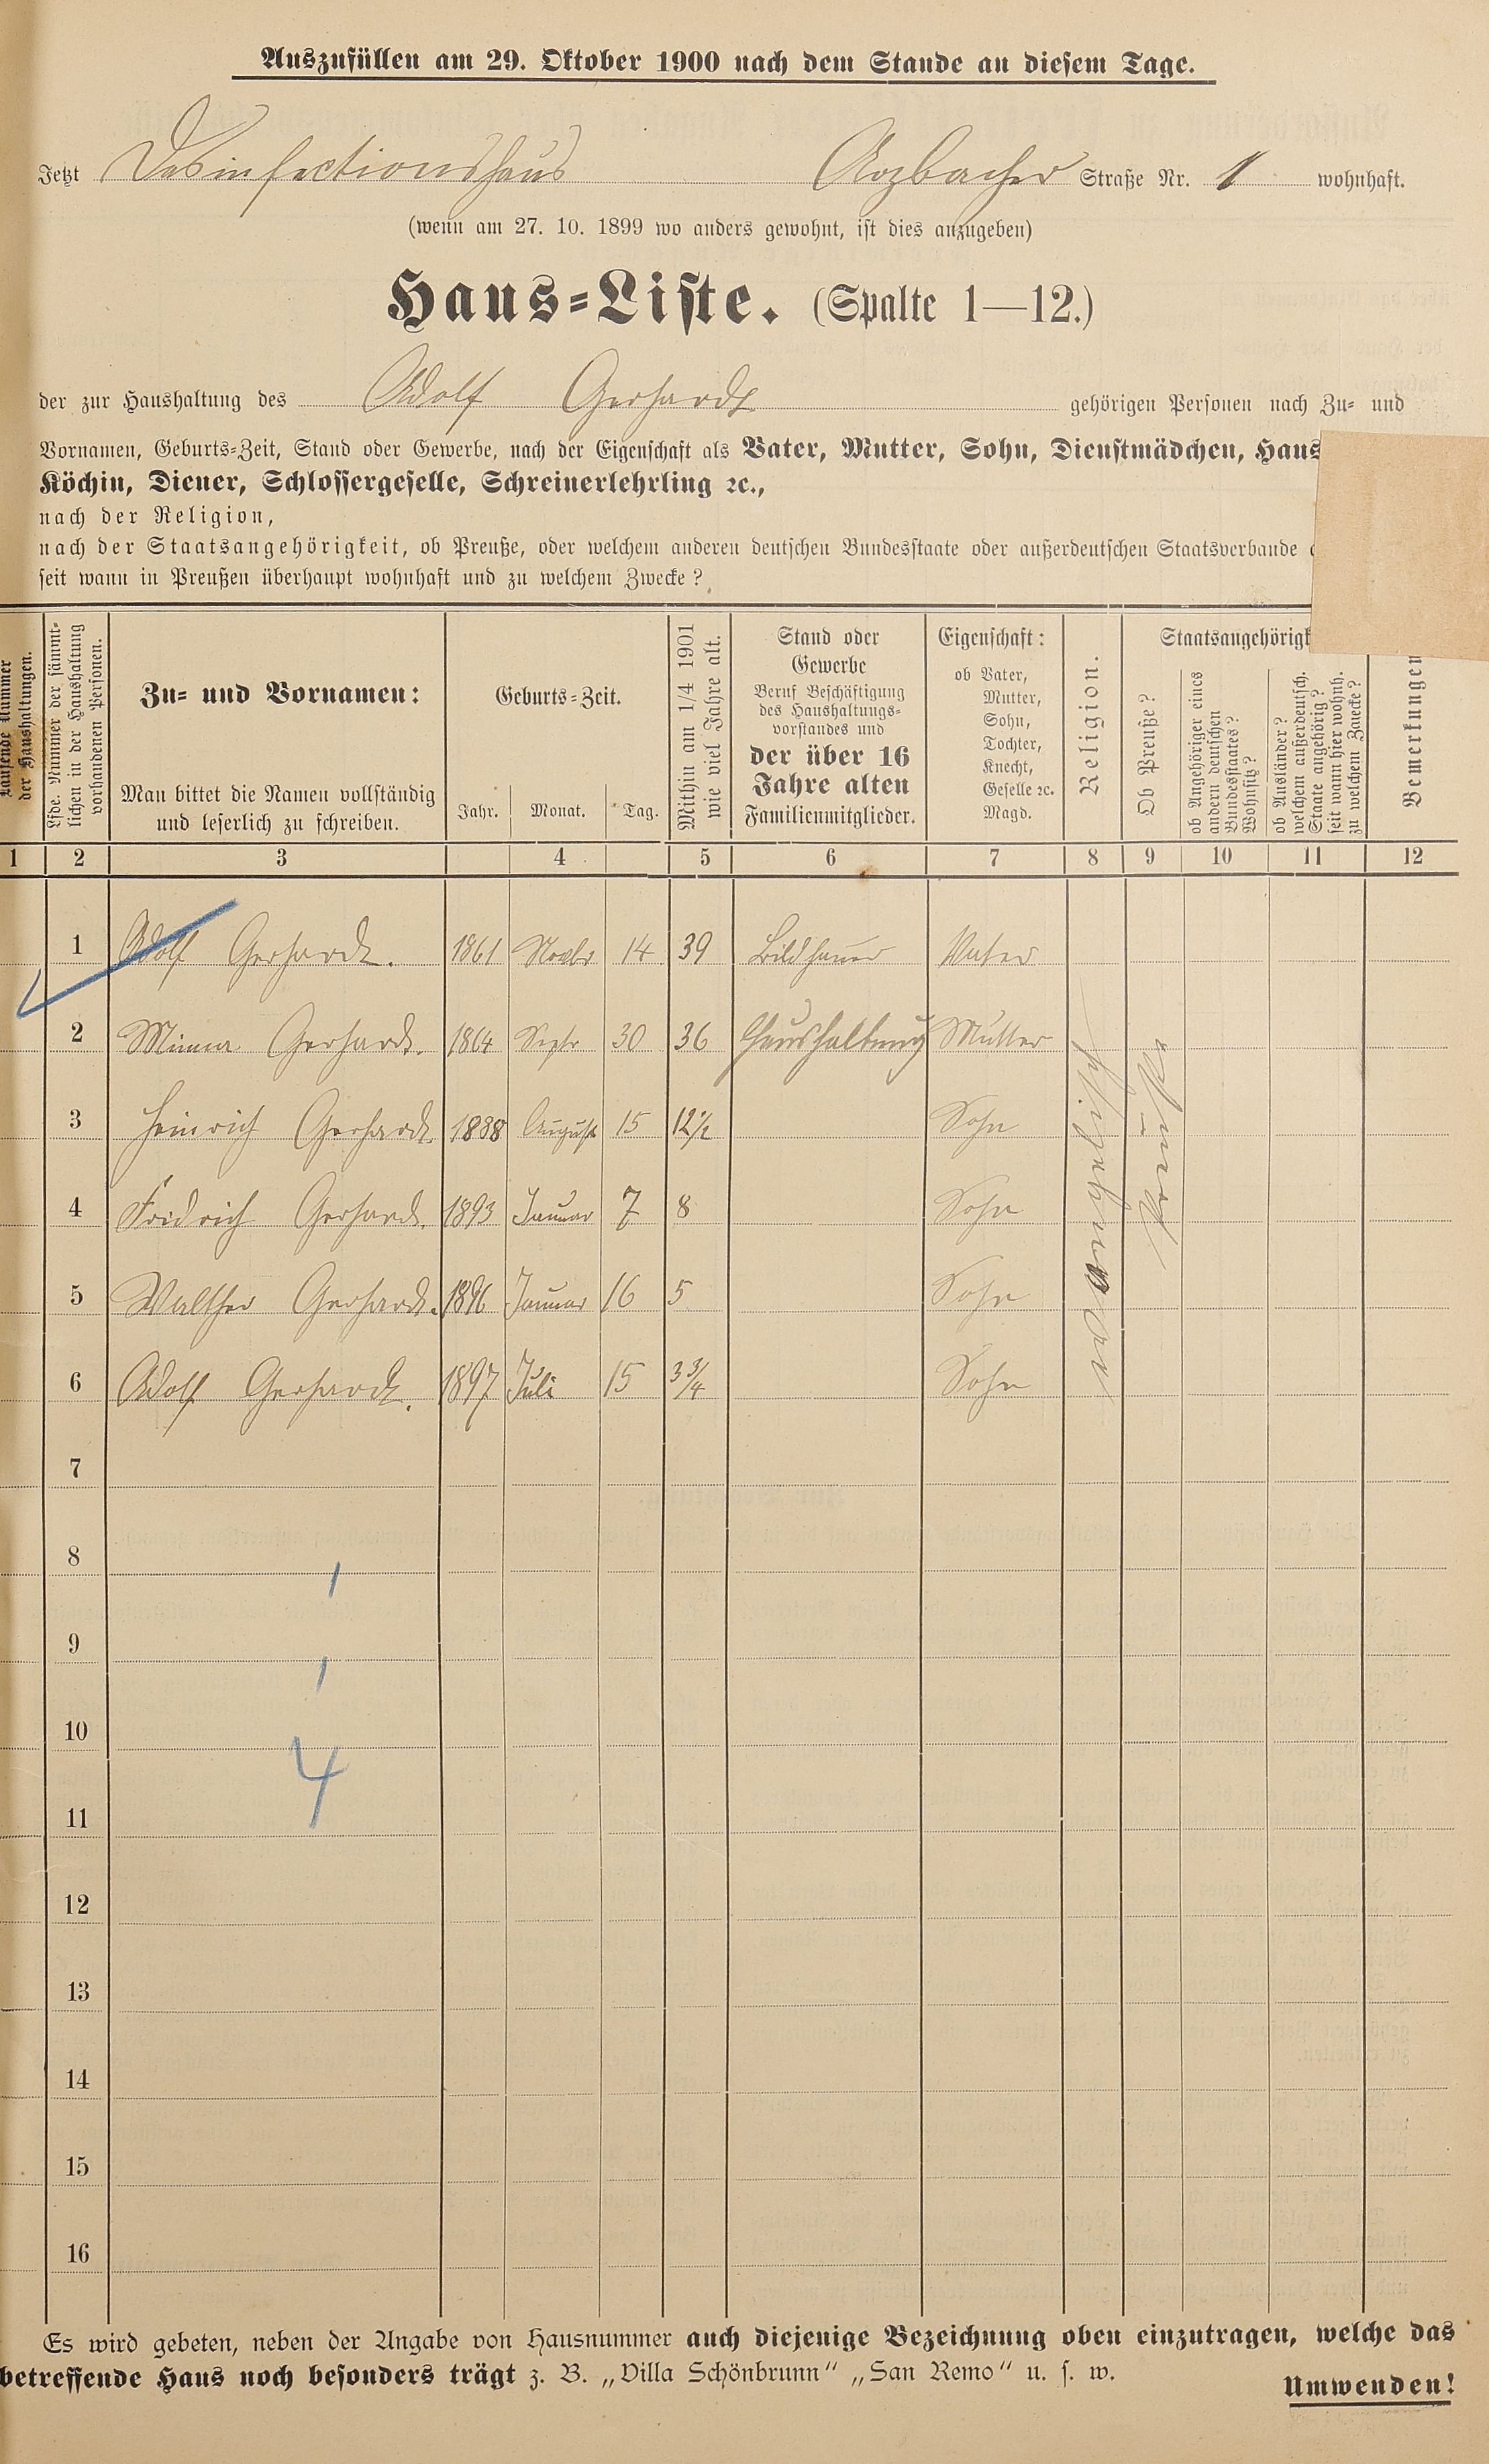 Auszufüllen am 29. Oktober 1900 nach dem Stande an diesem Tage.
Jetzt Desinfectionshaus Arzbacher Straße Nr. 1 wohnhaft.
(wenn am 27. 10. 1899 wo anders gewohnt, ist dies anzugeben)
Haus-Liste. (Spalte 1—12.)
der zur Haushaltung des Adolf Gerhardt gehörigen Personen nach Zu- und
Vornamen, Geburts-Zeit, Stand oder Gewerbe, nach der Eigenschaft als Vater, Mutter, Sohn, Dienstmädchen, Haus
Köchin, Diener, Schlossergeselle, Schreinerlehrling ꝛc.,
nach der Religion,
nach der Staatsangehörigkeit, ob Preuße, oder welchem anderen deutschen Bundesstaate oder außerdeutschen Staatsverbande
seit wann in Preußen überhaupt wohnhaft und zu welchem Zwecke?
Laufende Nummer
der Haushaltungen.
Lfde. Nummer der sämmt-
lichen in der Haushaltung
vorhandenen Personen.
Zu- und Vornamen:
Man bittet die Namen vollständig
und leserlich zu schreiben.
Geburts-Zeit.
Jahr. Monat. Tag.
Mithin am 1/4 1901
wie viel Jahre alt.
Stand oder
Gewerbe
Beruf Beschäftigung
des Haushaltungs-
vorstandes und
der über 16
Jahre alten
Familienmitglieder.
Eigenschaft:
ob Vater,
Mutter,
Sohn,
Tochter,
Knecht,
Geselle ꝛc.
Magd.
Religion.
Staatsangehörigk
Ob Preuße?
ob Angehöriger eines
andern deutschen
Bundesstaates?
Wohnsitz?
ob Ausländer?
welchem außerdeutsch.
Staate angehörig?
seit wann hier wohnh.
zu welchem Zwecke?
Bemerkungen
1 2 3 4 5 6 7 8 9 10 11 12
1 Adolf Gerhardt. 1861 Novbr 14 39 Bildhauer Vater
2 Minna Gerhardt. 1864 Septr 30 36 Haushaltung Mutter
3 Heinrich Gerhardt. 1888 August 15 12 1/2 Sohn
4 Fridrich Gerhardt. 1893 Januar 7 8 Sohn
5 Walther Gerhardt. 1896 Januar 16 5 Sohn
6 Adolf Gerhardt. 1897 Juli 15 3 3/4 Sohn
evangelisch
Preuße
7
8
1
9
1
10
4
11
12
13
14
15
16
Es wird gebeten, neben der Angabe von Hausnummer auch diejenige Bezeichnung oben einzutragen, welche das
betreffende Haus noch besonders trägt z. B. „Villa Schönbrunn“ „San Remo“ u. s. w.
Umwenden!